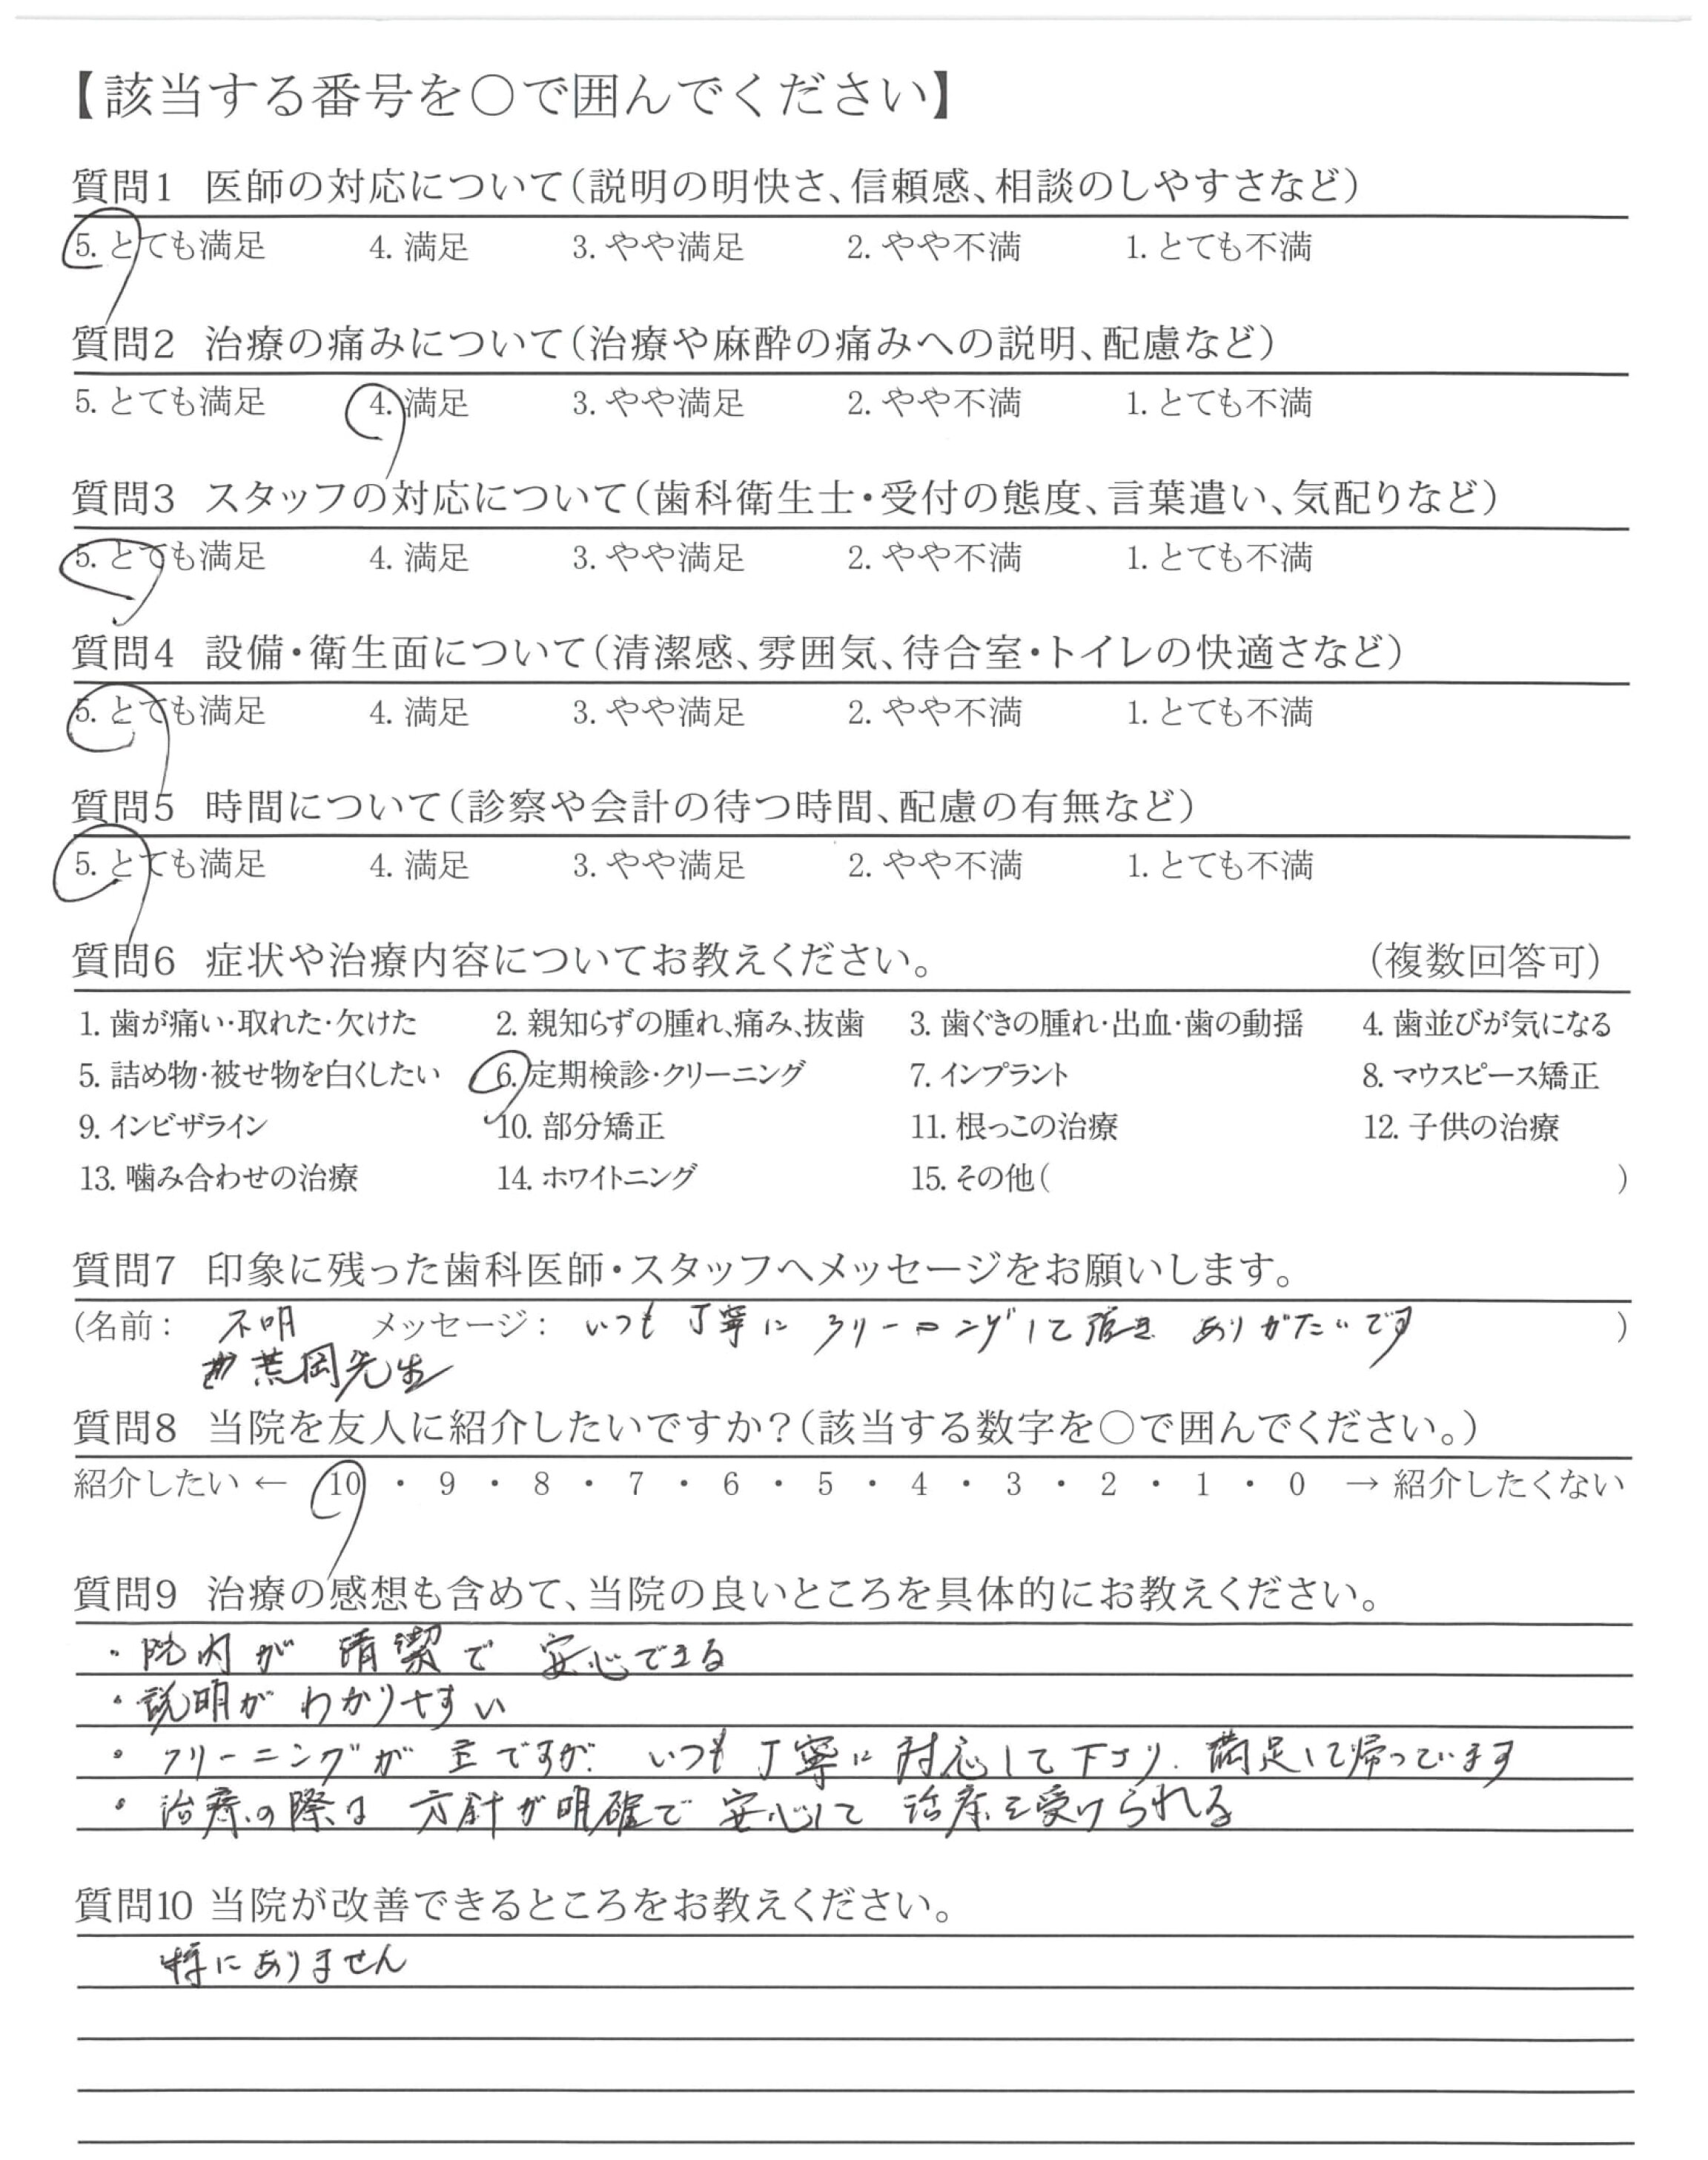 【該当する番号を○で囲んでください】
質問1 医師の対応について(説明の明快さ、信頼感、相談のしやすさなど)
5. とても満足 4. 満足 3. やや満足 2. やや不満 1. とても不満
質問2 治療の痛みについて(治療や麻酔の痛みへの説明、配慮など)
5. とても満足 4. 満足 3. やや満足 2. やや不満 1. とても不満
質問3 スタッフの対応について(歯科衛生士・受付の態度、言葉遣い、気配りなど)
5. とても満足 4. 満足 3. やや満足 2. やや不満 1. とても不満
質問4 設備・衛生面について(清潔感、雰囲気、待合室・トイレの快適さなど)
5. とても満足 4. 満足 3. やや満足 2. やや不満 1. とても不満
質問5 時間について(診察や会計の待つ時間、配慮の有無など)
5. とても満足 4. 満足 3. やや満足 2. やや不満 1. とても不満
質問6 症状や治療内容についてお教えください。 (複数回答可)
1. 歯が痛い・取れた・欠けた 2. 親知らずの腫れ、痛み、抜歯 3. 歯ぐきの腫れ・出血・歯の動揺 4. 歯並びが気になる
5. 詰め物・被せ物を白くしたい 6. 定期検診・クリーニング 7. インプラント 8. マウスピース矯正
9. インビザライン 10. 部分矯正 11. 根っこの治療 12. 子供の治療
13. 噛み合わせの治療 14. ホワイトニング 15. その他( )
質問7 印象に残った歯科医師・スタッフへメッセージをお願いします。
(名前: 不明 メッセージ: いつも丁寧にクリーニングして頂き ありがたいです )
荒岡先生
質問8 当院を友人に紹介したいですか?(該当する数字を○で囲んでください。)
紹介したい ← 10 ・ 9 ・ 8 ・ 7 ・ 6 ・ 5 ・ 4 ・ 3 ・ 2 ・ 1 ・ 0 → 紹介したくない
質問9 治療の感想も含めて、当院の良いところを具体的にお教えください。
・院内が 清潔で 安心できる
・説明が わかりやすい
・クリーニングが 主ですが、いつも丁寧に 対応して下さり、満足して帰っています
・治療の際は 方針が明確で 安心して 治療を受けられる
質問10 当院が改善できるところをお教えください。
特にありません